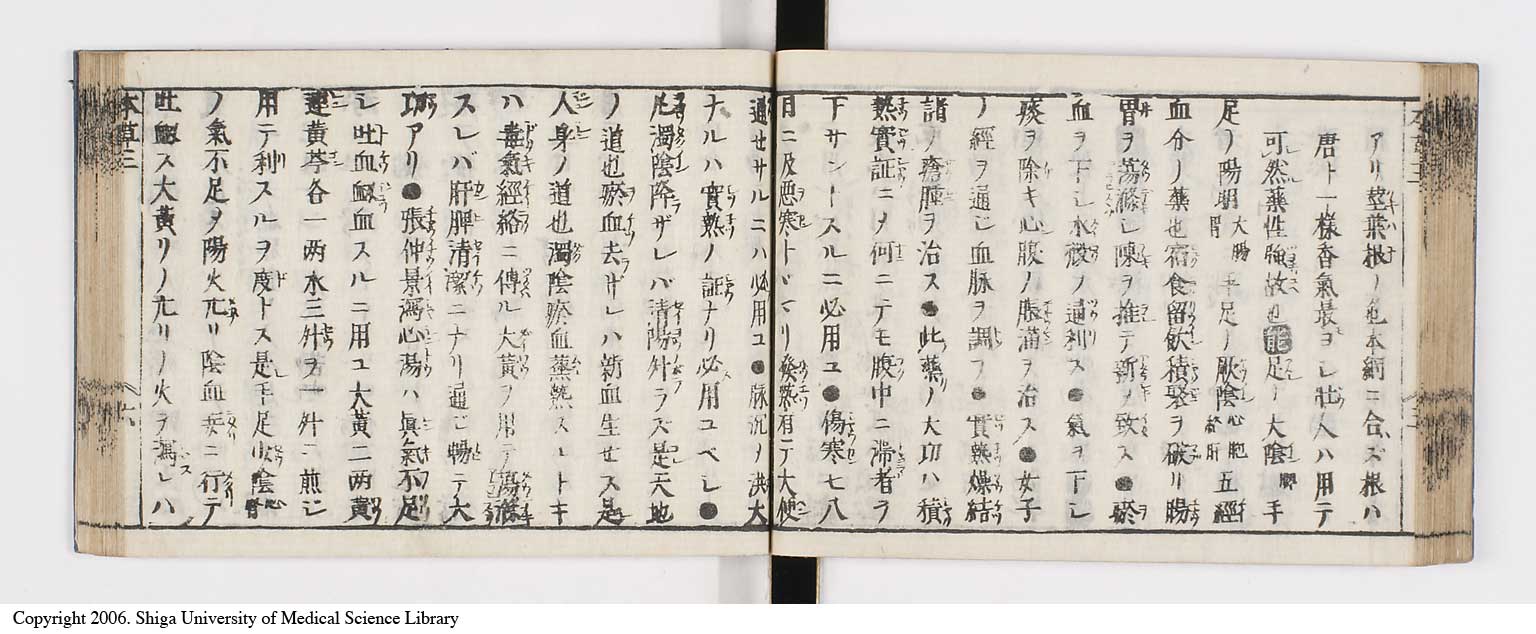 アリ莖葉根ノ色本綱ニ合ズ根ハ
唐ト一樣香氣最ヨシ壯人ハ用テ
可然藥性強故也能足ノ大陰脾手
足ノ陽明大腸胃手足ノ厥陰心胞絡肝五經
血分ノ藥也宿食留飲積聚ヲ破リ腸
胃ヲ蕩滌シ陳ヲ推テ新ヲ致ス●瘀
血ヲ下シ水穀ヲ通利ス●氣ヲ下シ
痰ヲ除キ心腹ノ脹滿ヲ治ス●女子
ノ經ヲ通ビ血脉ヲ調フ●實熱燥結
諸ノ瘡腫ヲ治ス●此藥ノ大功ハ積
熱實証ニメ何ニテモ腹中ニ滯者ヲ
下サントスルニ必用ユ●傷寒七八
日ニ及悪寒トヾマリ發熱有テ大便
通セサルニハ必用ユ●脉沉ノ洪大
ナルハ實熱ノ証ナリ必用ユベシ●
凡濁陰降ザレバ清陽升ラズ是天地
ノ道也瘀血去ザレハ新血生セス是
人身ノ道也濁陰瘀血蒸熱スルトキ
ハ毒氣經絡ニ傳ル大黃ヲ用テ蕩滌
スレバ肝脾清潔ニナリ通ビ暢テ大
功アリ●張仲景瀉心湯ハ眞氣不足
シ吐血衂血スルニ用ユ大黃二两黃
連黃芩各一两水三升ヲ一升ニ煎ジ
用テ利スルヲ度トス是手足少陰心腎
ノ氣不足ヲ陽火亢リ陰血妄ニ行テ
吐衂ス大黃リノ亢リノ火ヲ瀉シハ
本草三
六